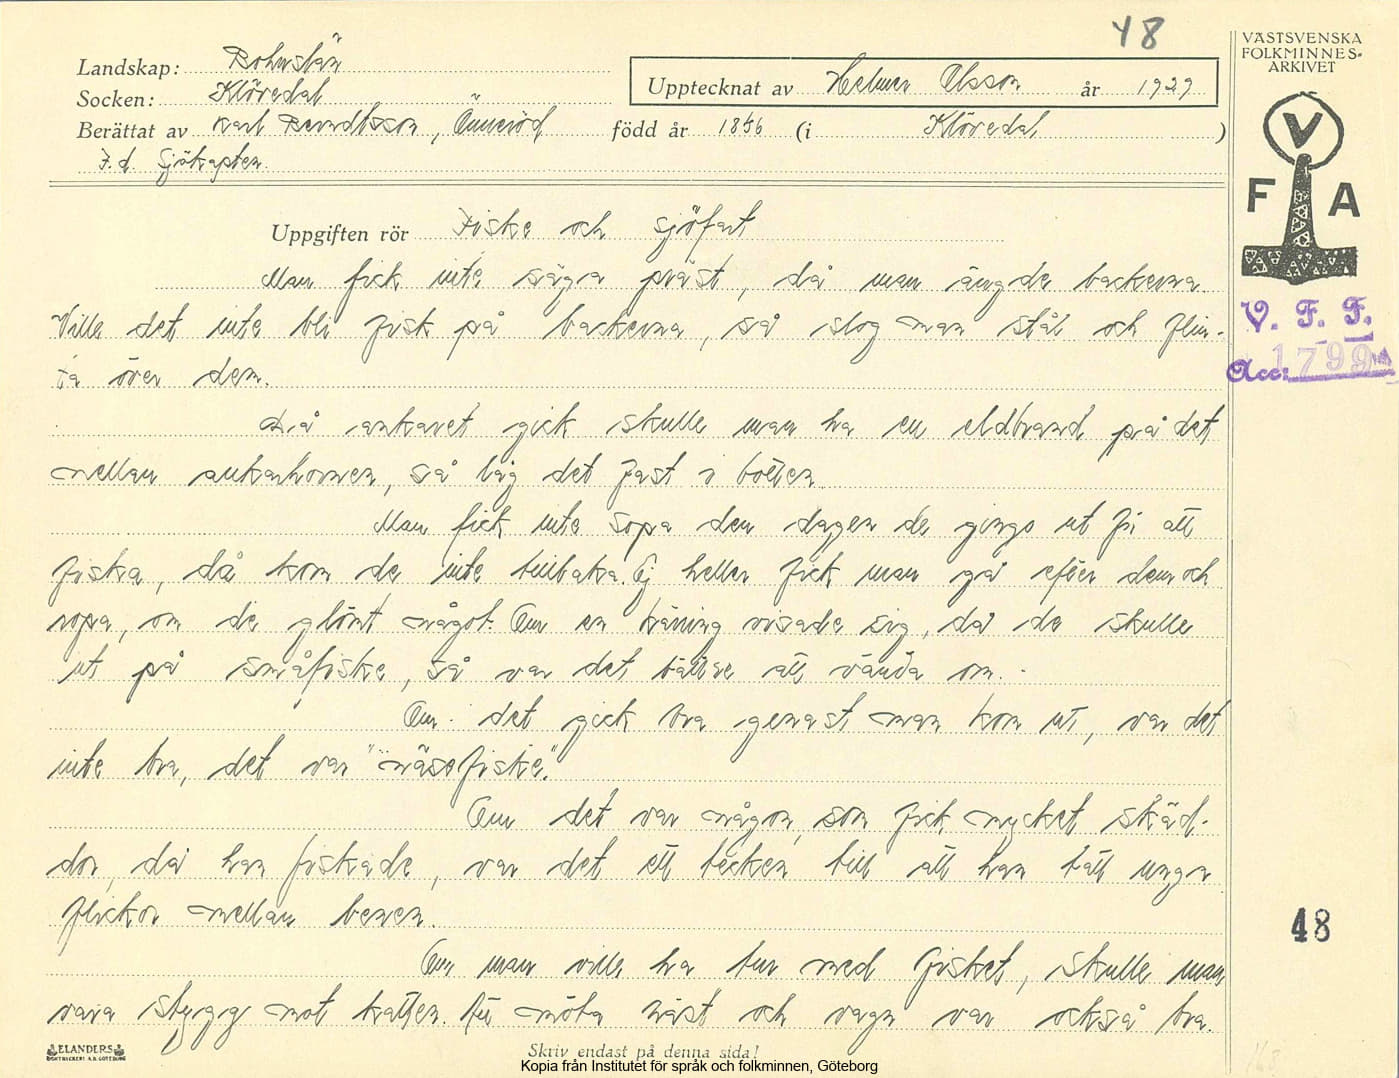 48
VÄSTSVENSKA
FOLKMINNES-
ARKIVET
Landskap: Bohuslän
Socken: Klövedal
Upptecknat av Helmer Olsson år 1929
Berättat av Karl Berndtsson, Önneröd född år 1856 (i Klövedal)
F.d. Sjökapten.
V
F A
Uppgiften rör Fiske och sjöfart
Man fick inte säga präst, då man ängde backerna.
Ville det inte bli fisk på backerna, så slog man stål och flin-
ta över dem.
V. F. F.
Acc: 1799
Då ankaret gick skulle man ha en eldbrand på det
mellan ankarhornen, så låg det fast i botten.
Man fick inte sopa den dagen de gingo ut för att
fiska, då kom de inte tillbaka. Ej heller fick man gå efter dem och
ropa, om de glömt något. Om en käring visade sig, då de skulle
ut på småfiske, så var det bättre att vända om.
Om det gick bra genast man kom ut, var det
inte bra, det var "näsefiske".
Om det var någon, som fick mycket skäd-
dor, då han fiskade, var det ett tecken till att han tatt unga
flickor mellan benen.
48
Om man ville ha tur med fisket, skulle man
vara stygg mot katten. Att möta häst och vagn var också bra.
ELANDERS
Skriv endast på denna sida!
Kopia från Institutet för språk och folkminnen, Göteborg